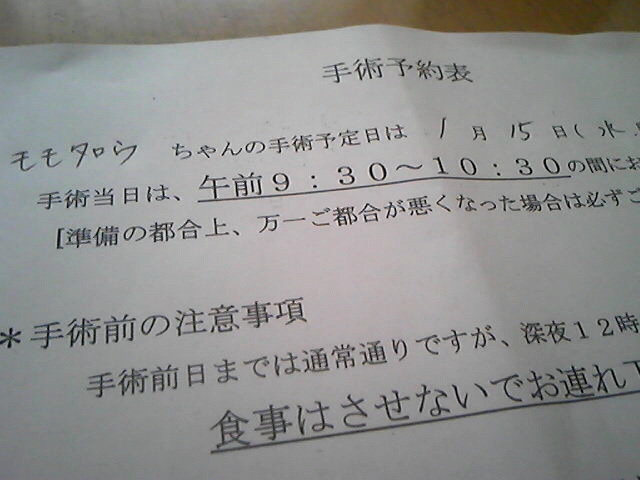 手術予約表
モモタロウ ちゃんの手術予定日は 1 月 15 日( 水
手術当日は、午前9:30~10:30の間にお
[準備の都合上、万一ご都合が悪くなった場合は必ずご
*手術前の注意事項
手術前日までは通常通りですが、深夜12時
食事はさせないでお連れ下